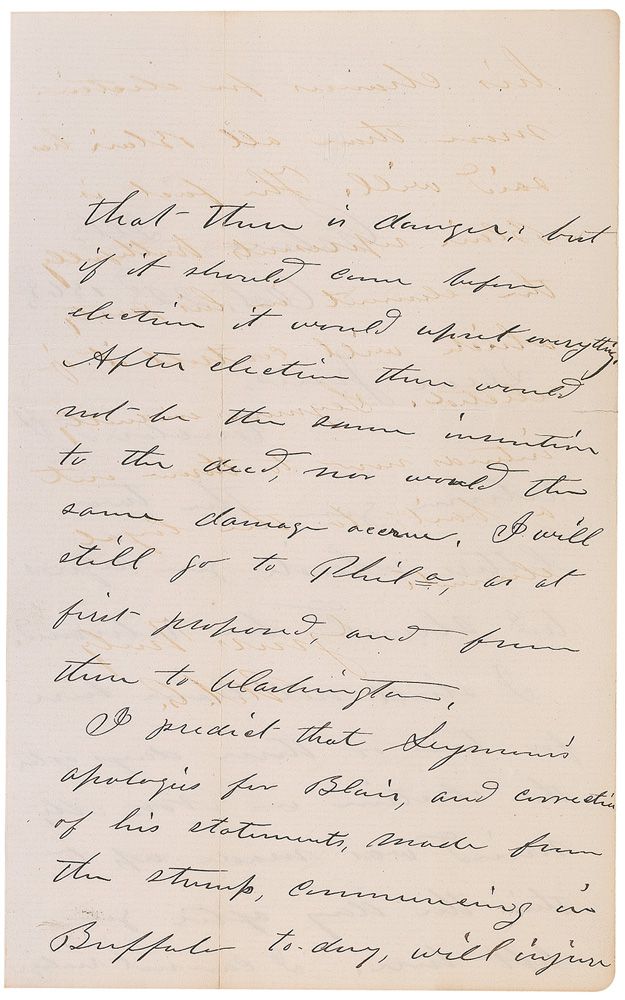 that there is danger; but
if it should come before
election it would upset everything.
After election there would
not be the same incentive
to the deed, nor would the
same damage accrue. I will
still go to Phila, as at
first proposed, and from
there to Washington.
I predict that Seymour's
apologies for Blair, and correction
of his statements, made from
the stump, commencing in
Buffalo to-day, will injure